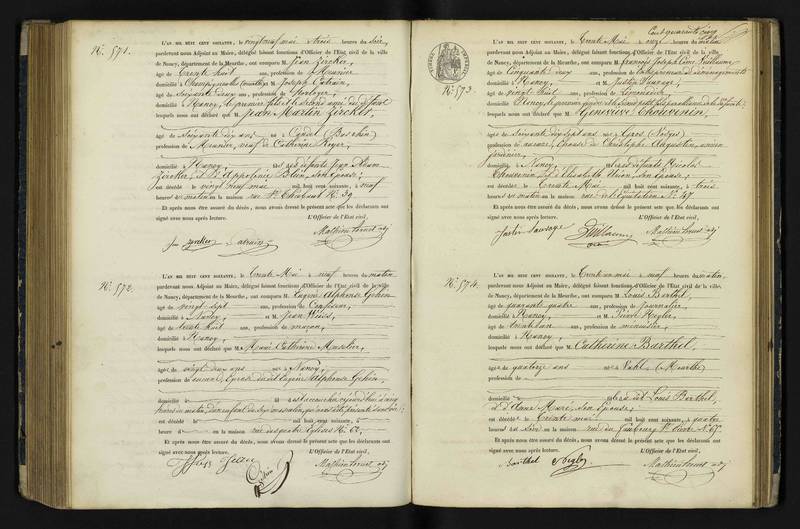 N°. 571.
L'AN MIL HUIT CENT SOIXANTE, le vingt neuf mai à trois heures du soir,
pardevant nous Adjoint au Maire, délégué faisant fonctions d'Officier de l'Etat civil de la ville
de Nancy, département de la Meurthe, ont comparu M. Jean Zircker,
âgé de Trente huit ans, profession de Meunier
domicilié à Champigneulles (Meurthe) et M. Joseph
âgé de soixante deux ans, profession de horloger,
domicilié à Nancy, le premier fils et le second ami du défunt
lesquels nous ont déclaré que M. Jean Martin Zircker,
âgé de soixante dix ans né à Candel (Bas rhin)
profession de Meunier, veuf de Catherine Royer,
domicilié à Nancy, des défunts Jean Adam
Zircker, et D. Appolonie son épouse;
est décédé le vingt neuf mai mil huit cent soixante, à neuf
heures du matin en la maison rue St. Thiebaut N°. 39
Et après nous être assuré du décès, nous avons dressé le présent acte que les déclarants ont
signé avec nous après lecture. L'Officier de l'Etat civil,
Zircker
N°. 572.
L'AN MIL HUIT CENT SOIXANTE, le Trente Mai à neuf heures du matin
pardevant nous Adjoint au Maire, délégué faisant fonctions d'Officier de l'Etat civil de la ville
de Nancy, département de la Meurthe, ont comparu M. Eugène Alphonse
âgé de vingt sept ans, profession de Confiseur,
domicilié à Nancy, et M. Jean
âgé de trente huit ans, profession de maçon,
domicilié à Nancy,
lesquels nous ont déclaré que M. Marie Catherine
âgée de vingt deux ans née à Nancy,
profession de épouse du dit Eugène Alphonse
domicilié à est accouchée aujourd'hui à cinq
heures du matin, d'un enfant du sexe masculin, présenté sans vie;
est décédé le mil huit cent soixante, à
heure d en la maison rue des quatre Eglises N°. 62.
Et après nous être assuré du décès, nous avons dressé le présent acte que les déclarants ont
signé avec nous après lecture. L'Officier de l'Etat civil,
Cent quarante cinq
N°. 573
L'AN MIL HUIT CENT SOIXANTE, le Trente Mai à onze heures du matin
pardevant nous Adjoint au Maire, délégué faisant fonctions d'Officier de l'Etat civil de la ville
de Nancy, département de la Meurthe, ont comparu M. François Joseph Guillaume
âgé de Cinquante deux ans, profession de entrepreneur de déménagements
domicilié à Nancy, et M. Justin Sauvage,
âgé de vingt huit ans, profession de
domicilié à Nancy, le premier gendre et le second petit fils par alliance de la défunte;
lesquels nous ont déclaré que M. Geneviève Thouvenin,
âgée de soixante dix sept ans née à (Vosges)
profession de épouse de Christophe Augustin, ancien
jardinier,
domicilié à Nancy, des défunts Nicolas
Thouvenin, et Elisabeth son épouse;
est décédée le Trente Mai mil huit cent soixante, à trois
heures du matin en la maison rue de l'équitation N°. 47.
Et après nous être assuré du décès, nous avons dressé le présent acte que les déclarants ont
signé avec nous après lecture. L'Officier de l'Etat civil,
Justin Sauvage
N°. 574.
L'AN MIL HUIT CENT SOIXANTE, le Trente un mai à neuf heures du matin,
pardevant nous Adjoint au Maire, délégué faisant fonctions d'Officier de l'Etat civil de la ville
de Nancy, département de la Meurthe, ont comparu M. Louis Barthel,
âgé de quarante quatre ans, profession de journalier,
domicilié à Nancy, et M. Pierre
âgé de trente ans, profession de menuisier,
domicilié à Nancy,
lesquels nous ont déclaré que M. Catherine Barthel,
âgée de quatorze ans née à (Meurthe)
profession de
domiciliée à dit Louis Barthel,
et d'Anne Marie, son épouse;
est décédée le Trente mai mil huit cent soixante, à quatre
heures du soir en la maison rue du faubourg St. Pierre N°. 67.
Et après nous être assuré du décès, nous avons dressé le présent acte que les déclarants ont
signé avec nous après lecture. L'Officier de l'Etat civil,
Barthel